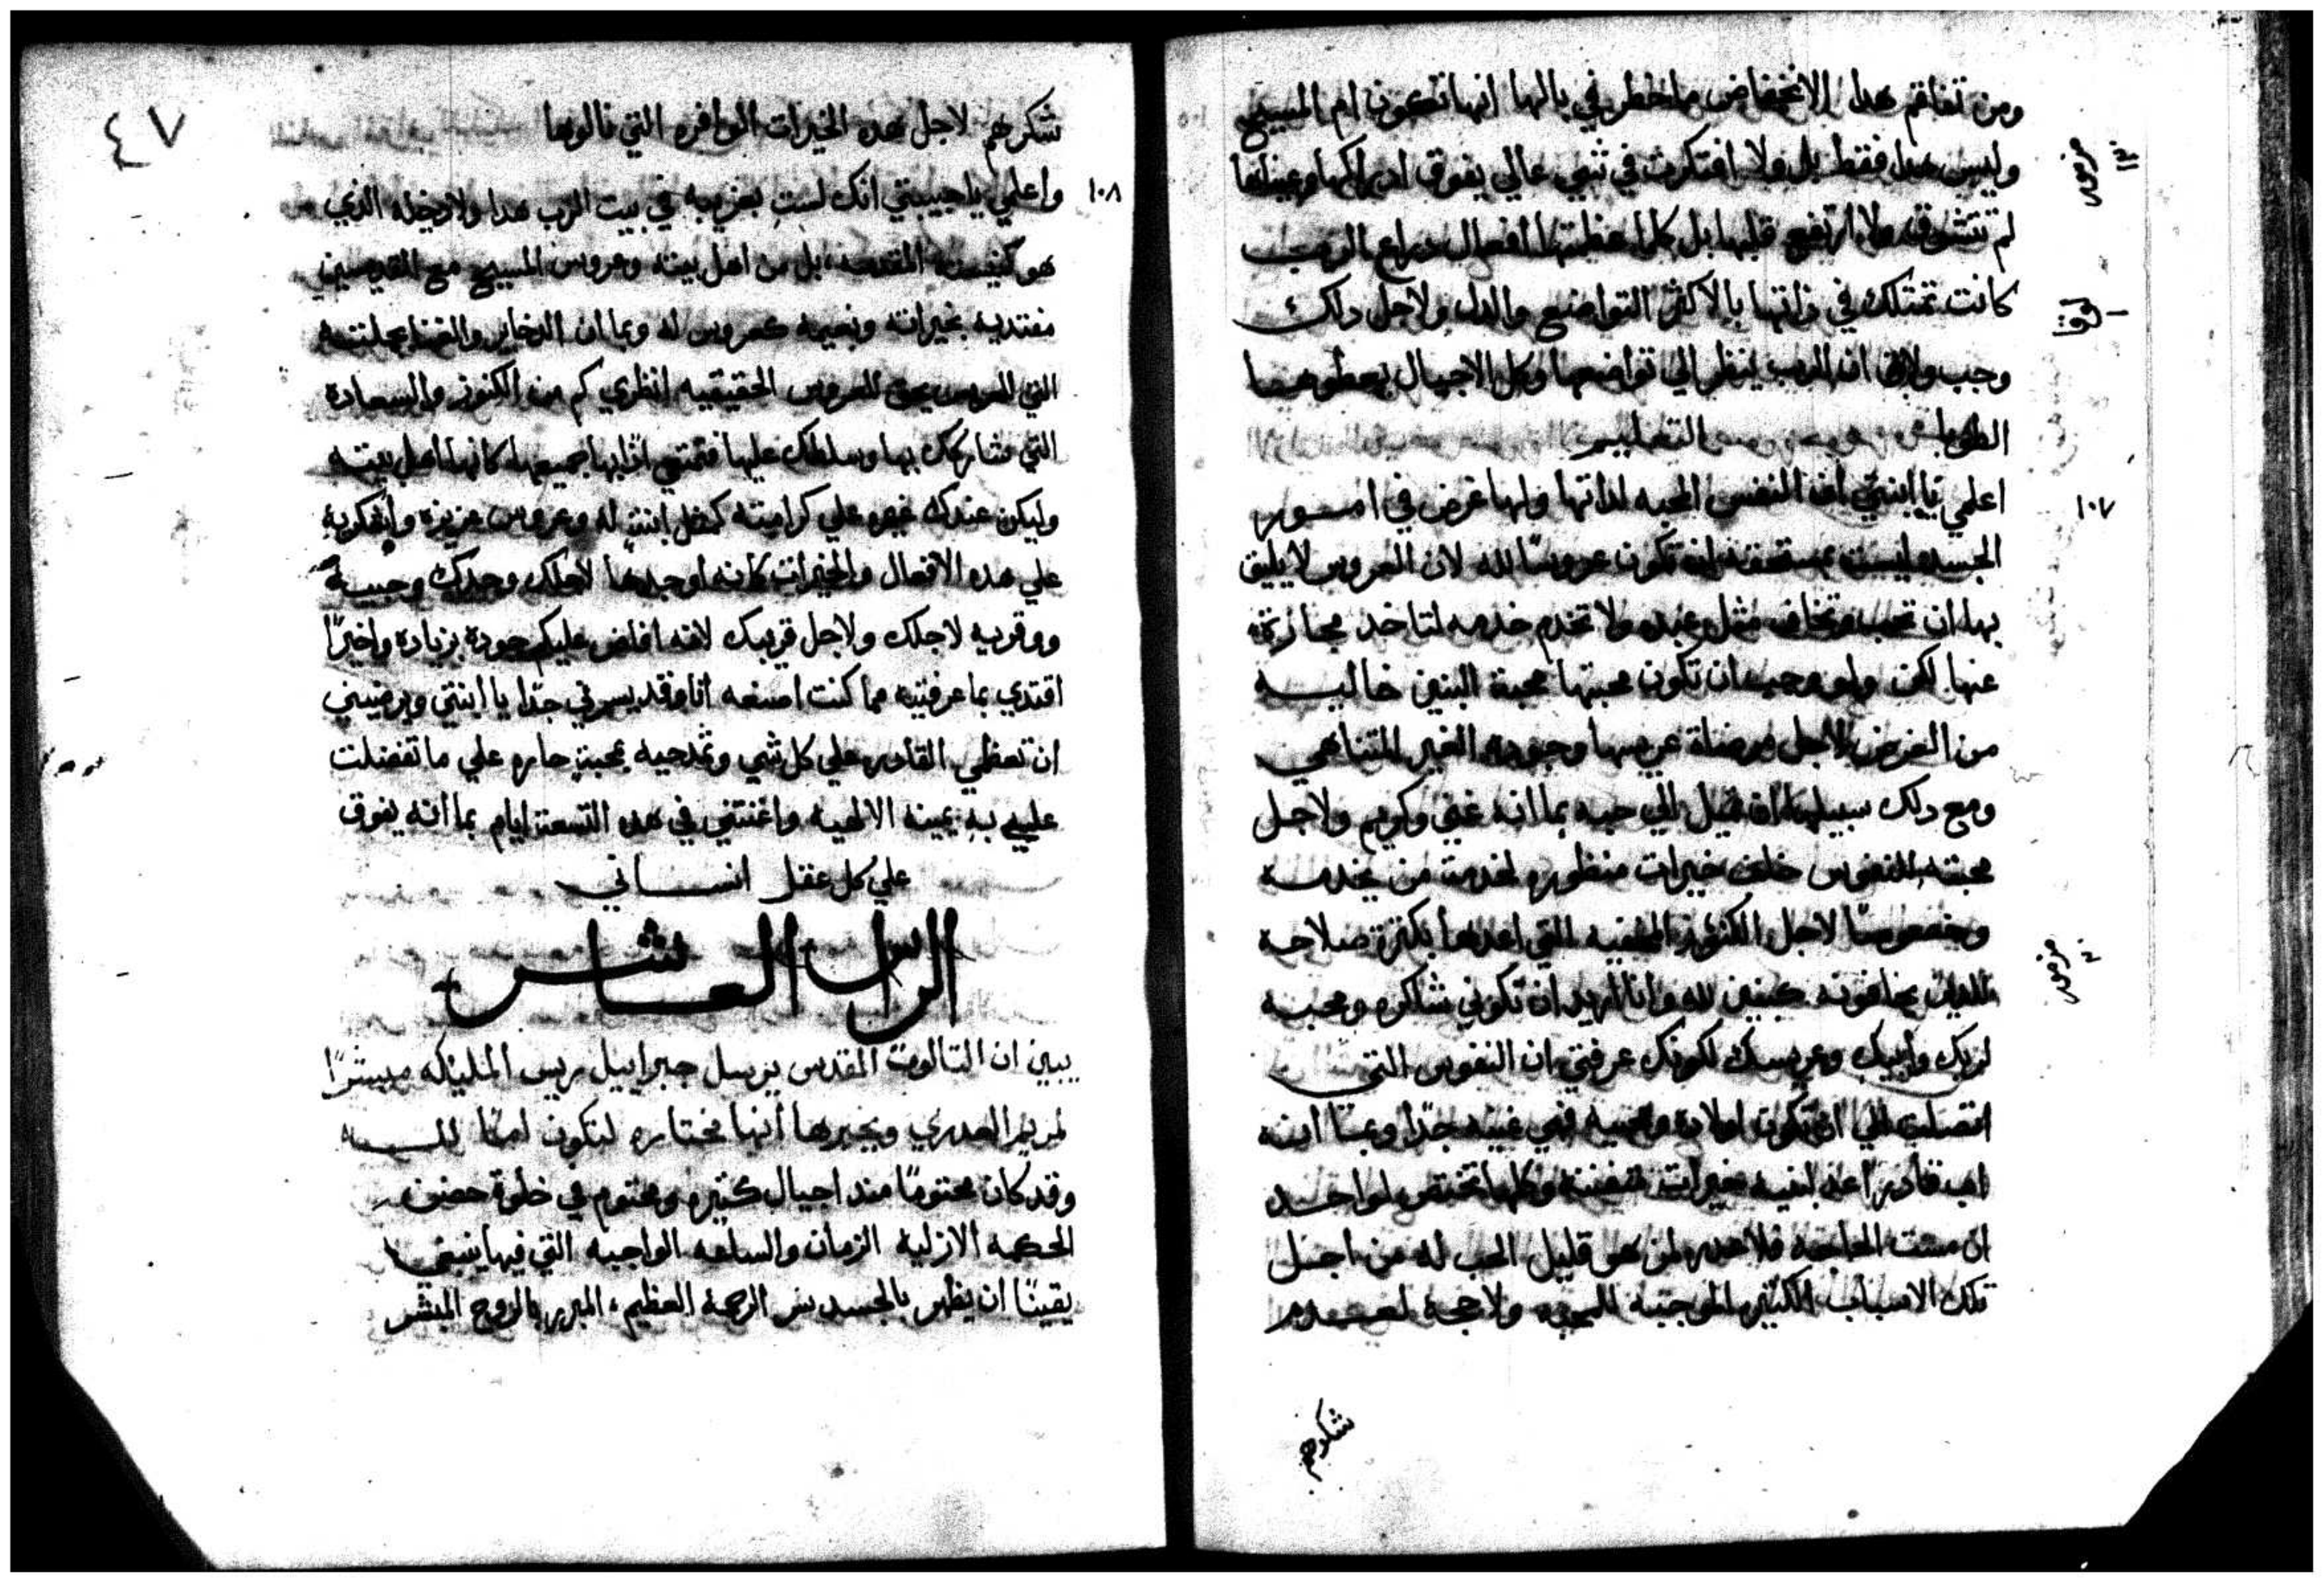 ومن تفاقم هدا الانخفاض ماخطر في بالها انها تكون ام المسيح
وليس هدا فقط بل ولا افتكرت في شي عالي يفوق ادراكها وعيناها
لم تتشوق ولا ارتفع قلبها بل كلما عظمتها افعال دراع الرب
كانت تمتلك في داتها بالاكثر التواضع والدل ولاجل دلك
وجب ولاق ان الرب ينظر الي تواضعها وكل الاجيال يعطوهها
الطوبا التعليم
مزمور ١٣٠
١ لوقا
١٠٧
اعلمي يا ابنتي ان النفس المحبه لداتها ولها غرض في امور
الجسد ليست بمستحقه ان تكون عروسًا لله لان العروس لا يليق
بها ان تحب وتخاف مثل عبده ولا تخدم خدمه لتاخد مجازاة
عنها لكن ولو وجب ان تكون محبتها محبة البنين خاليه
من الغرض لاجل مرضاة عريسها وجوده الغير المتناهي
ومع دلك سبيلها ان تميل الي حبه بما انه غني وكريم ولاجل
محبته للنفوس خلق خيرات منظوره لخدمة من يخدمه
وخصوصًا لاجل الكنوز المخفيه التي اعدها بكثرة صلاحه
للدين يخافونه كبنين لله وانا اريد ان تكوني شاكره ومحبه
مزمور ٣٠
لربك وابيك وعريسك لكونك عرفتي ان النفوس التي
اتصلت الي ان تكون اولاده وحبيبه فهي غنيه جدًا وبمتا ابنه
اب قادر اعد لبنيه خيرات متفننه وكلها تختص لواحد
ان مست الحاجه فلا عدر لمن هو قليل الحب له من اجل
تلك الاسباب الكثيره الموجبه للمحبه ولا حجة لعدم
شكرهم
٤٧
شكرهم لاجل هده الخيرات الوافره التي نالوها
١٠٨
واعلمي يا حبيبتي انك لست بغريبه في بيت الرب هدا ولا دخيله الذي
هو كنيسته المقدسه بل من اهل بيته وعروس المسيح مع القديسين
مغتديه بخيراته ونعيمه كعروس له وبما ان الدخاير والغنا بجملته
التي للعريس يحق للعروس الحقيقيه انظري كم من الكنوز والسعادة
التي شاركك بها وسلطك عليها فتمتعي ادًا بها جميعها كانها اهل بيته
وليكن عندك غيره علي كرامته كمثل ابنة له وعروس عزيزه واشكريه
علي هده الافعال والخيرات كانه اوجدها لاجلك وحدك وحبيبه
ووقريه لاجلك ولاجل قريبك لانه افاض عليكم جودة بزيادة واخيرًا
اقتدي بما عرفتيه مما كنت اصنعه انا وقد يسرني جدًا يا ابنتي ويرضيني
ان تعظمي القادر علي كل شي وتمدحيه بمحبةٍ حاره علي ما تفضلت
عليي به يمينه الالهيه واغنتني في هده التسعة ايام بما انه يفوق
علي كل عقل انساني
الراس العاشر
يبين ان التالوت المقدس يرسل جبراييل ريس المليكه مبشرًا
لمريم العدري ويخبرها انها مختاره لتكون امًا لله
وقد كان محتومًا مند اجيال كتيره ومختوم في خلوة حضن
الحكمه الازلية الزمان والساعه الواجبه التي فيها ينبغي
يقينًا ان يظهر بالجسد سر الرحمة العظيم، المبرر بالروح المبشر